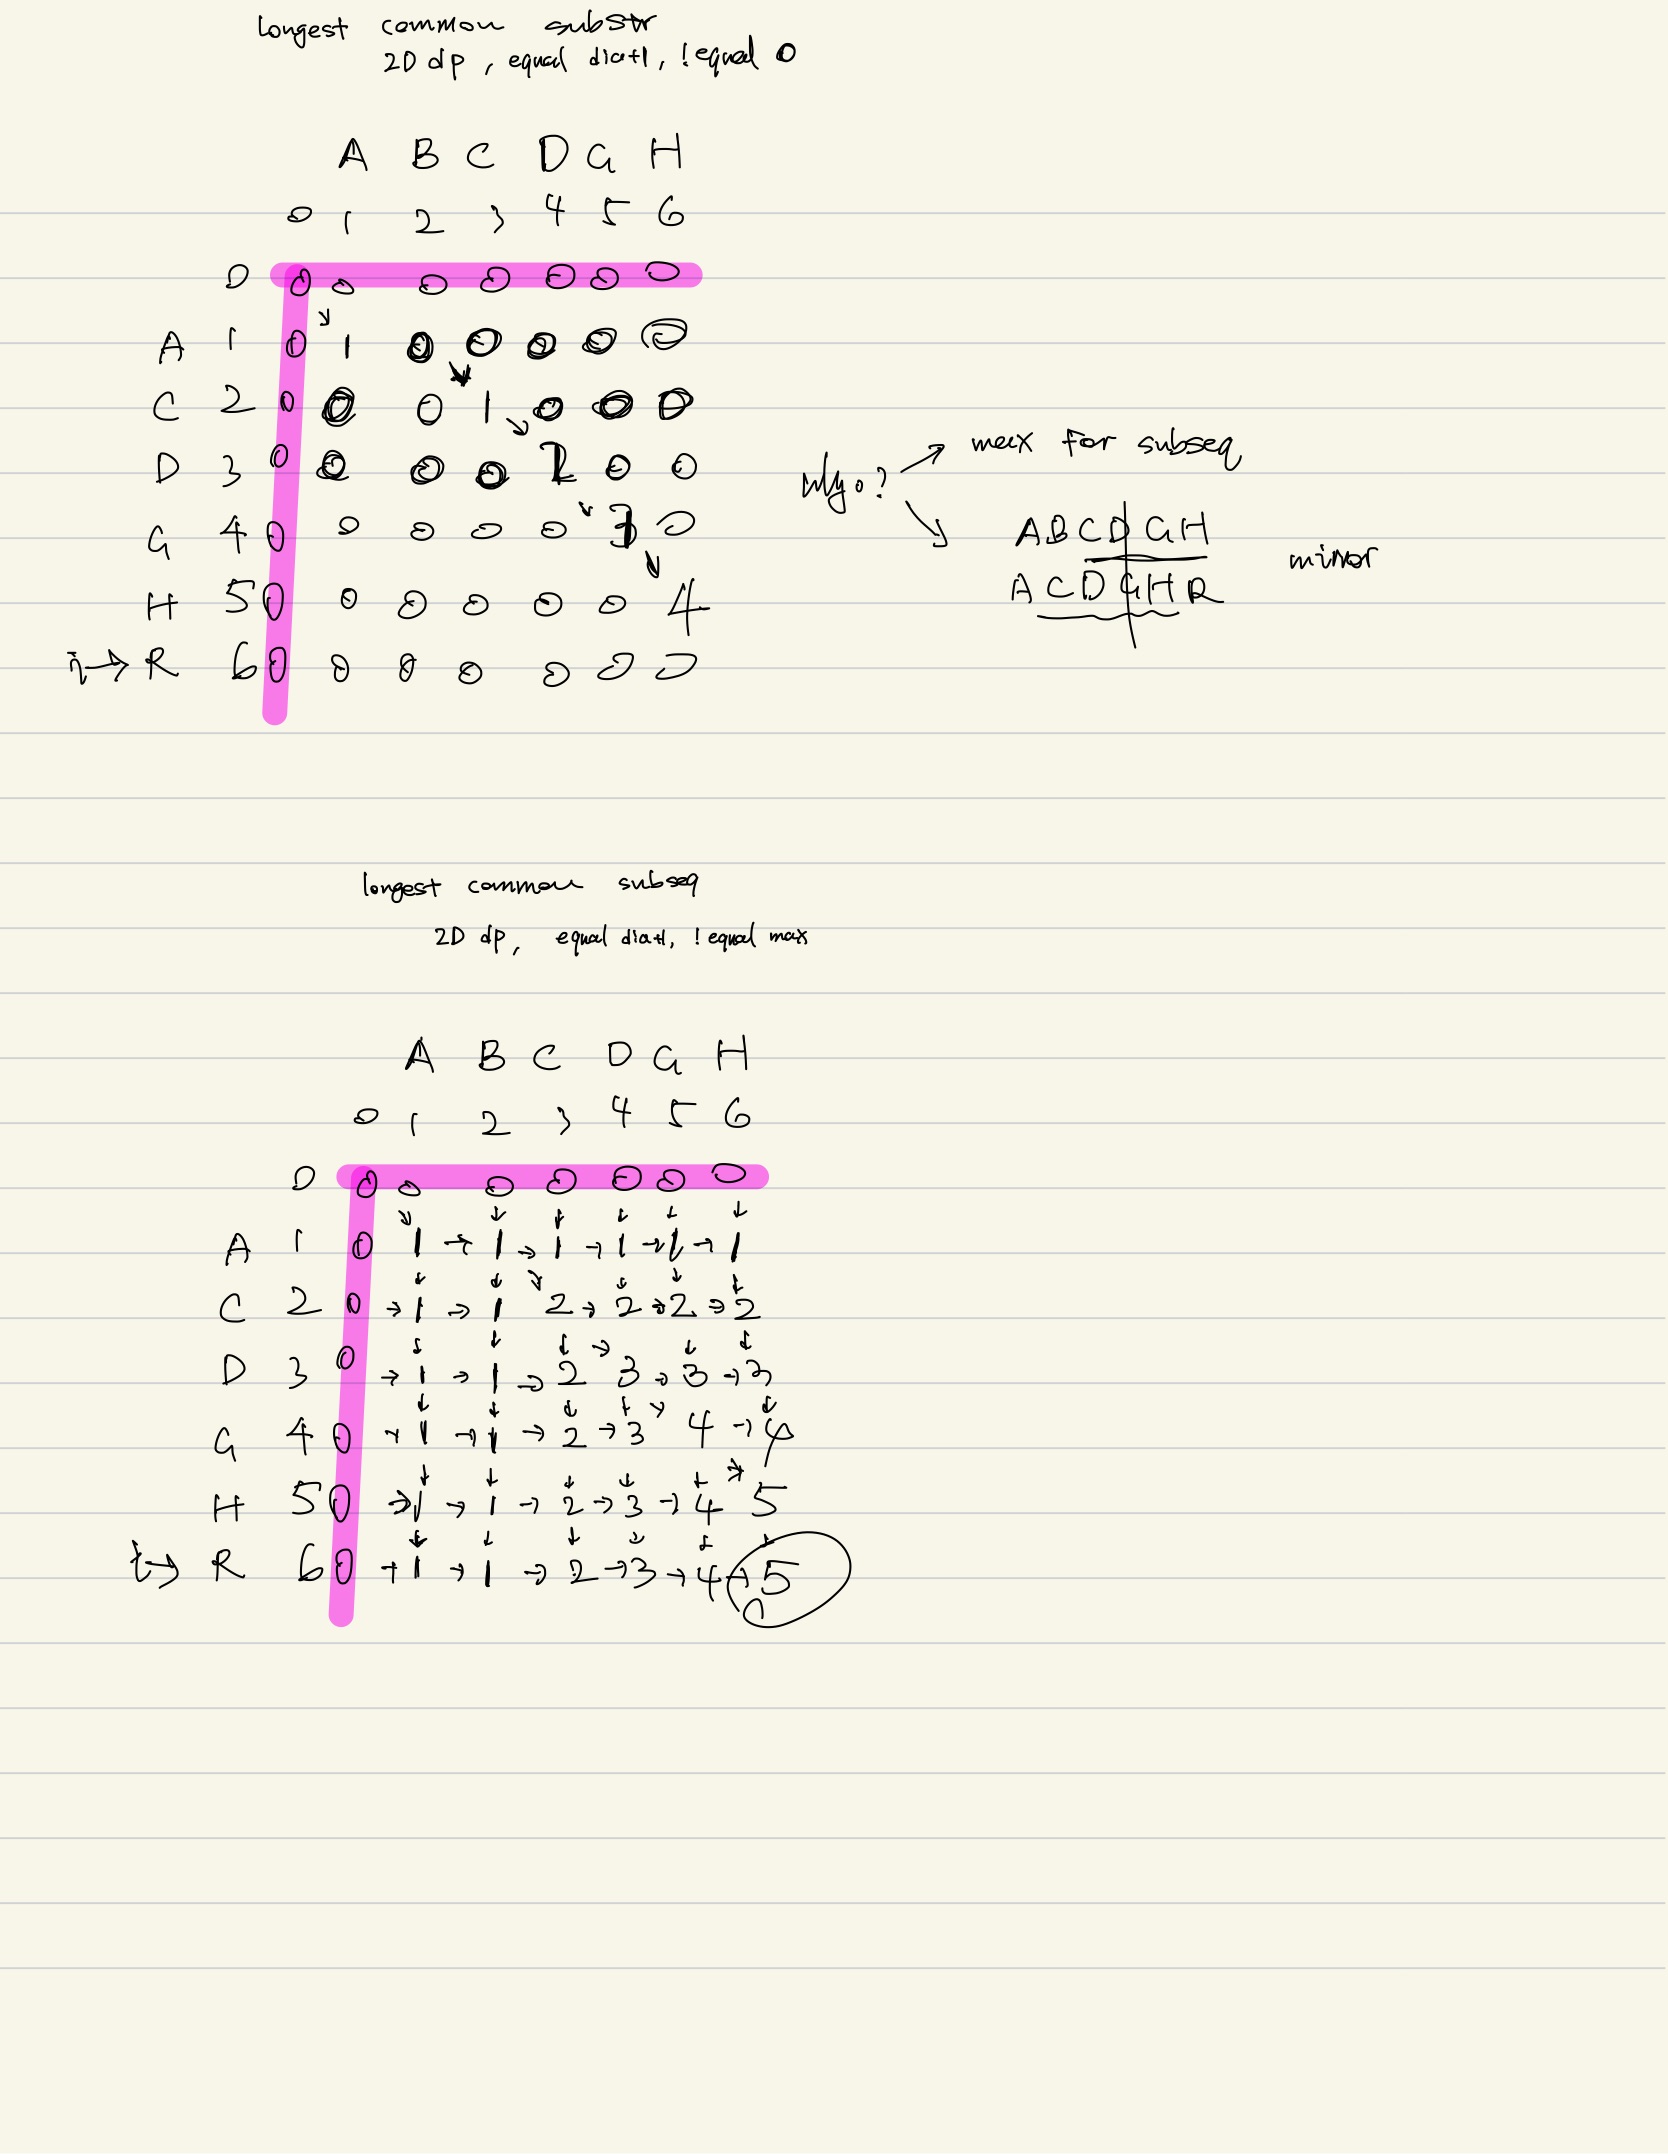 longest common substr
2D dp, equal dia+1, !equal 0
A B C D G H
0 1 2 3 4 5 6
0 0 0 0 0 0 0 0
A 1 0 1 0 0 0 0 0
C 2 0 0 0 1 0 0 0
D 3 0 0 0 0 2 0 0
G 4 0 0 0 0 0 3 0
H 5 0 0 0 0 0 0 4
i→ R 6 0 0 0 0 0 0 0
why 0? → max for subseq
ABCDGH
ACDGHR
mirror
longest common subseq
2D dp, equal dia+1, !equal max
A B C D G H
0 1 2 3 4 5 6
0 0 0 0 0 0 0 0
A 1 0 1 → 1 → 1 → 1 → 1 → 1
C 2 0 → 1 → 1 2 → 2 → 2 → 2
D 3 0 → 1 → 1 → 2 3 → 3 → 3
G 4 0 → 1 → 1 → 2 → 3 4 → 4
H 5 0 → 1 → 1 → 2 → 3 → 4 5
i→ R 6 0 → 1 → 1 → 2 → 3 → 4 → 5